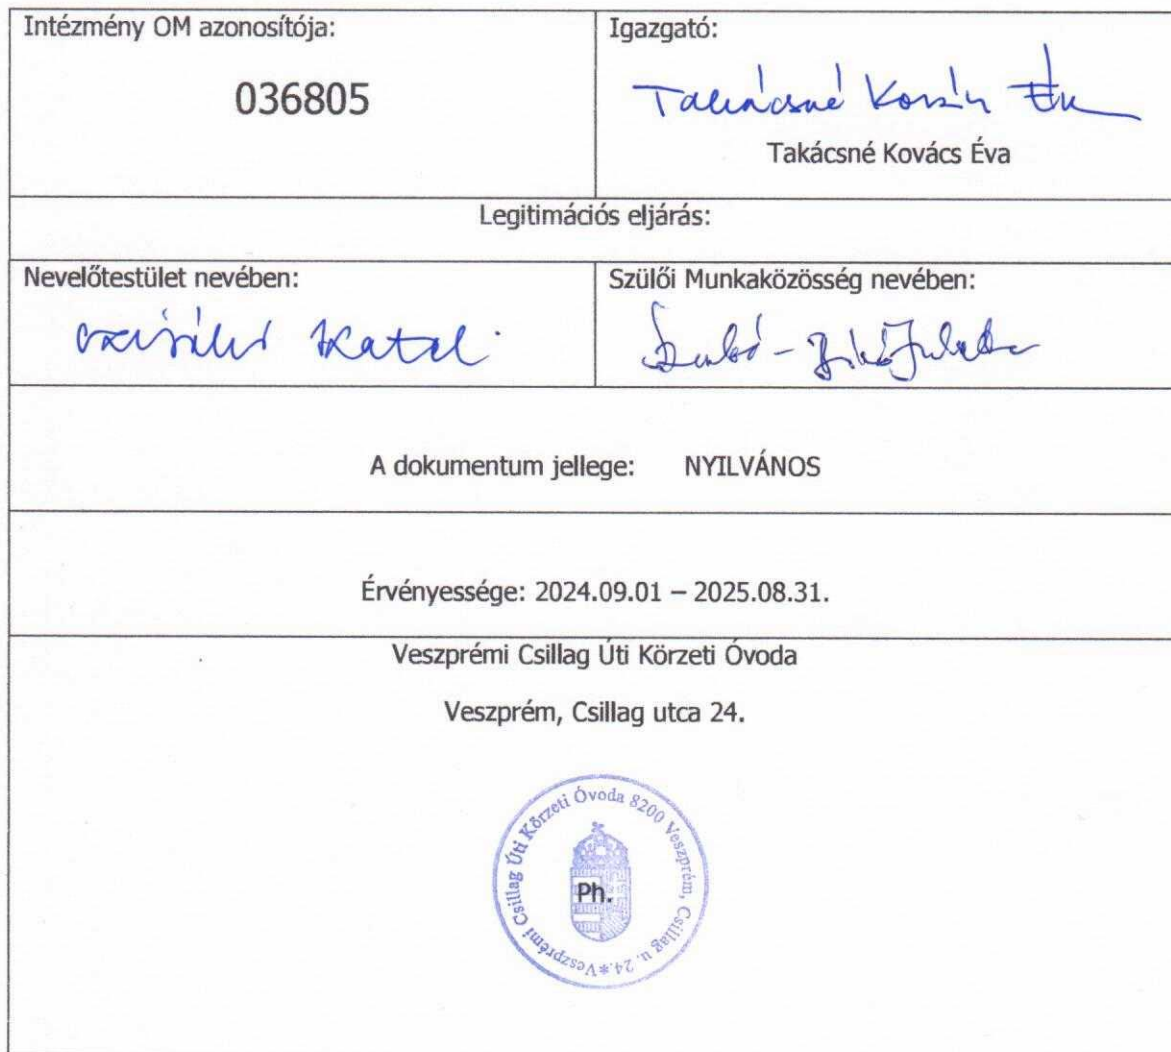 Intézmény OM azonosítója:
036805
Igazgató:
Takácsné Kovács Éva
Takácsné Kovács Éva
Legitimációs eljárás:
Nevelőtestület nevében:
Katal
Szülői Munkaközösség nevében:
Szabó-
A dokumentum jellege: NYILVÁNOS
Érvényessége: 2024.09.01 – 2025.08.31.
Veszprémi Csillag Úti Körzeti Óvoda
Veszprém, Csillag utca 24.
Veszprémi Csillag Úti Körzeti Óvoda 8200 Veszprém, Csillag u. 24.*
Ph.